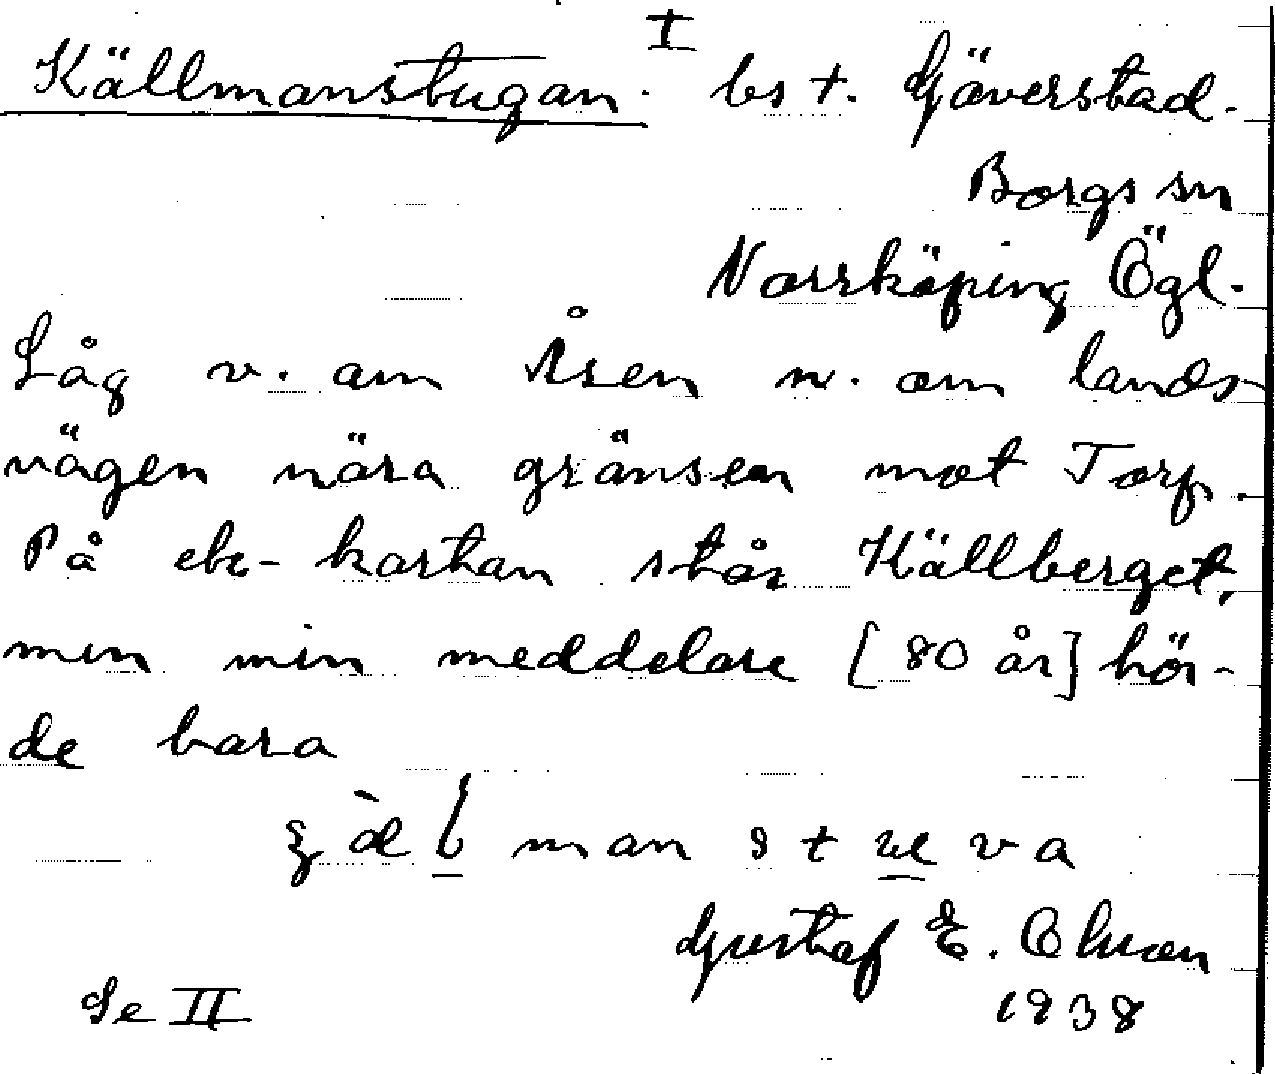 I
Källmanstugan. bs t. Gäverstad.
Borgs sn
Norrköping Ögl.
Låg v. om Åsen n. om lands-
vägen nära gränsen mot Torp.
På ek-kartan står Källberget,
men min meddelare [80 år] hör-
de bara
man st va
Gustaf E. Olsson
Se II 1938